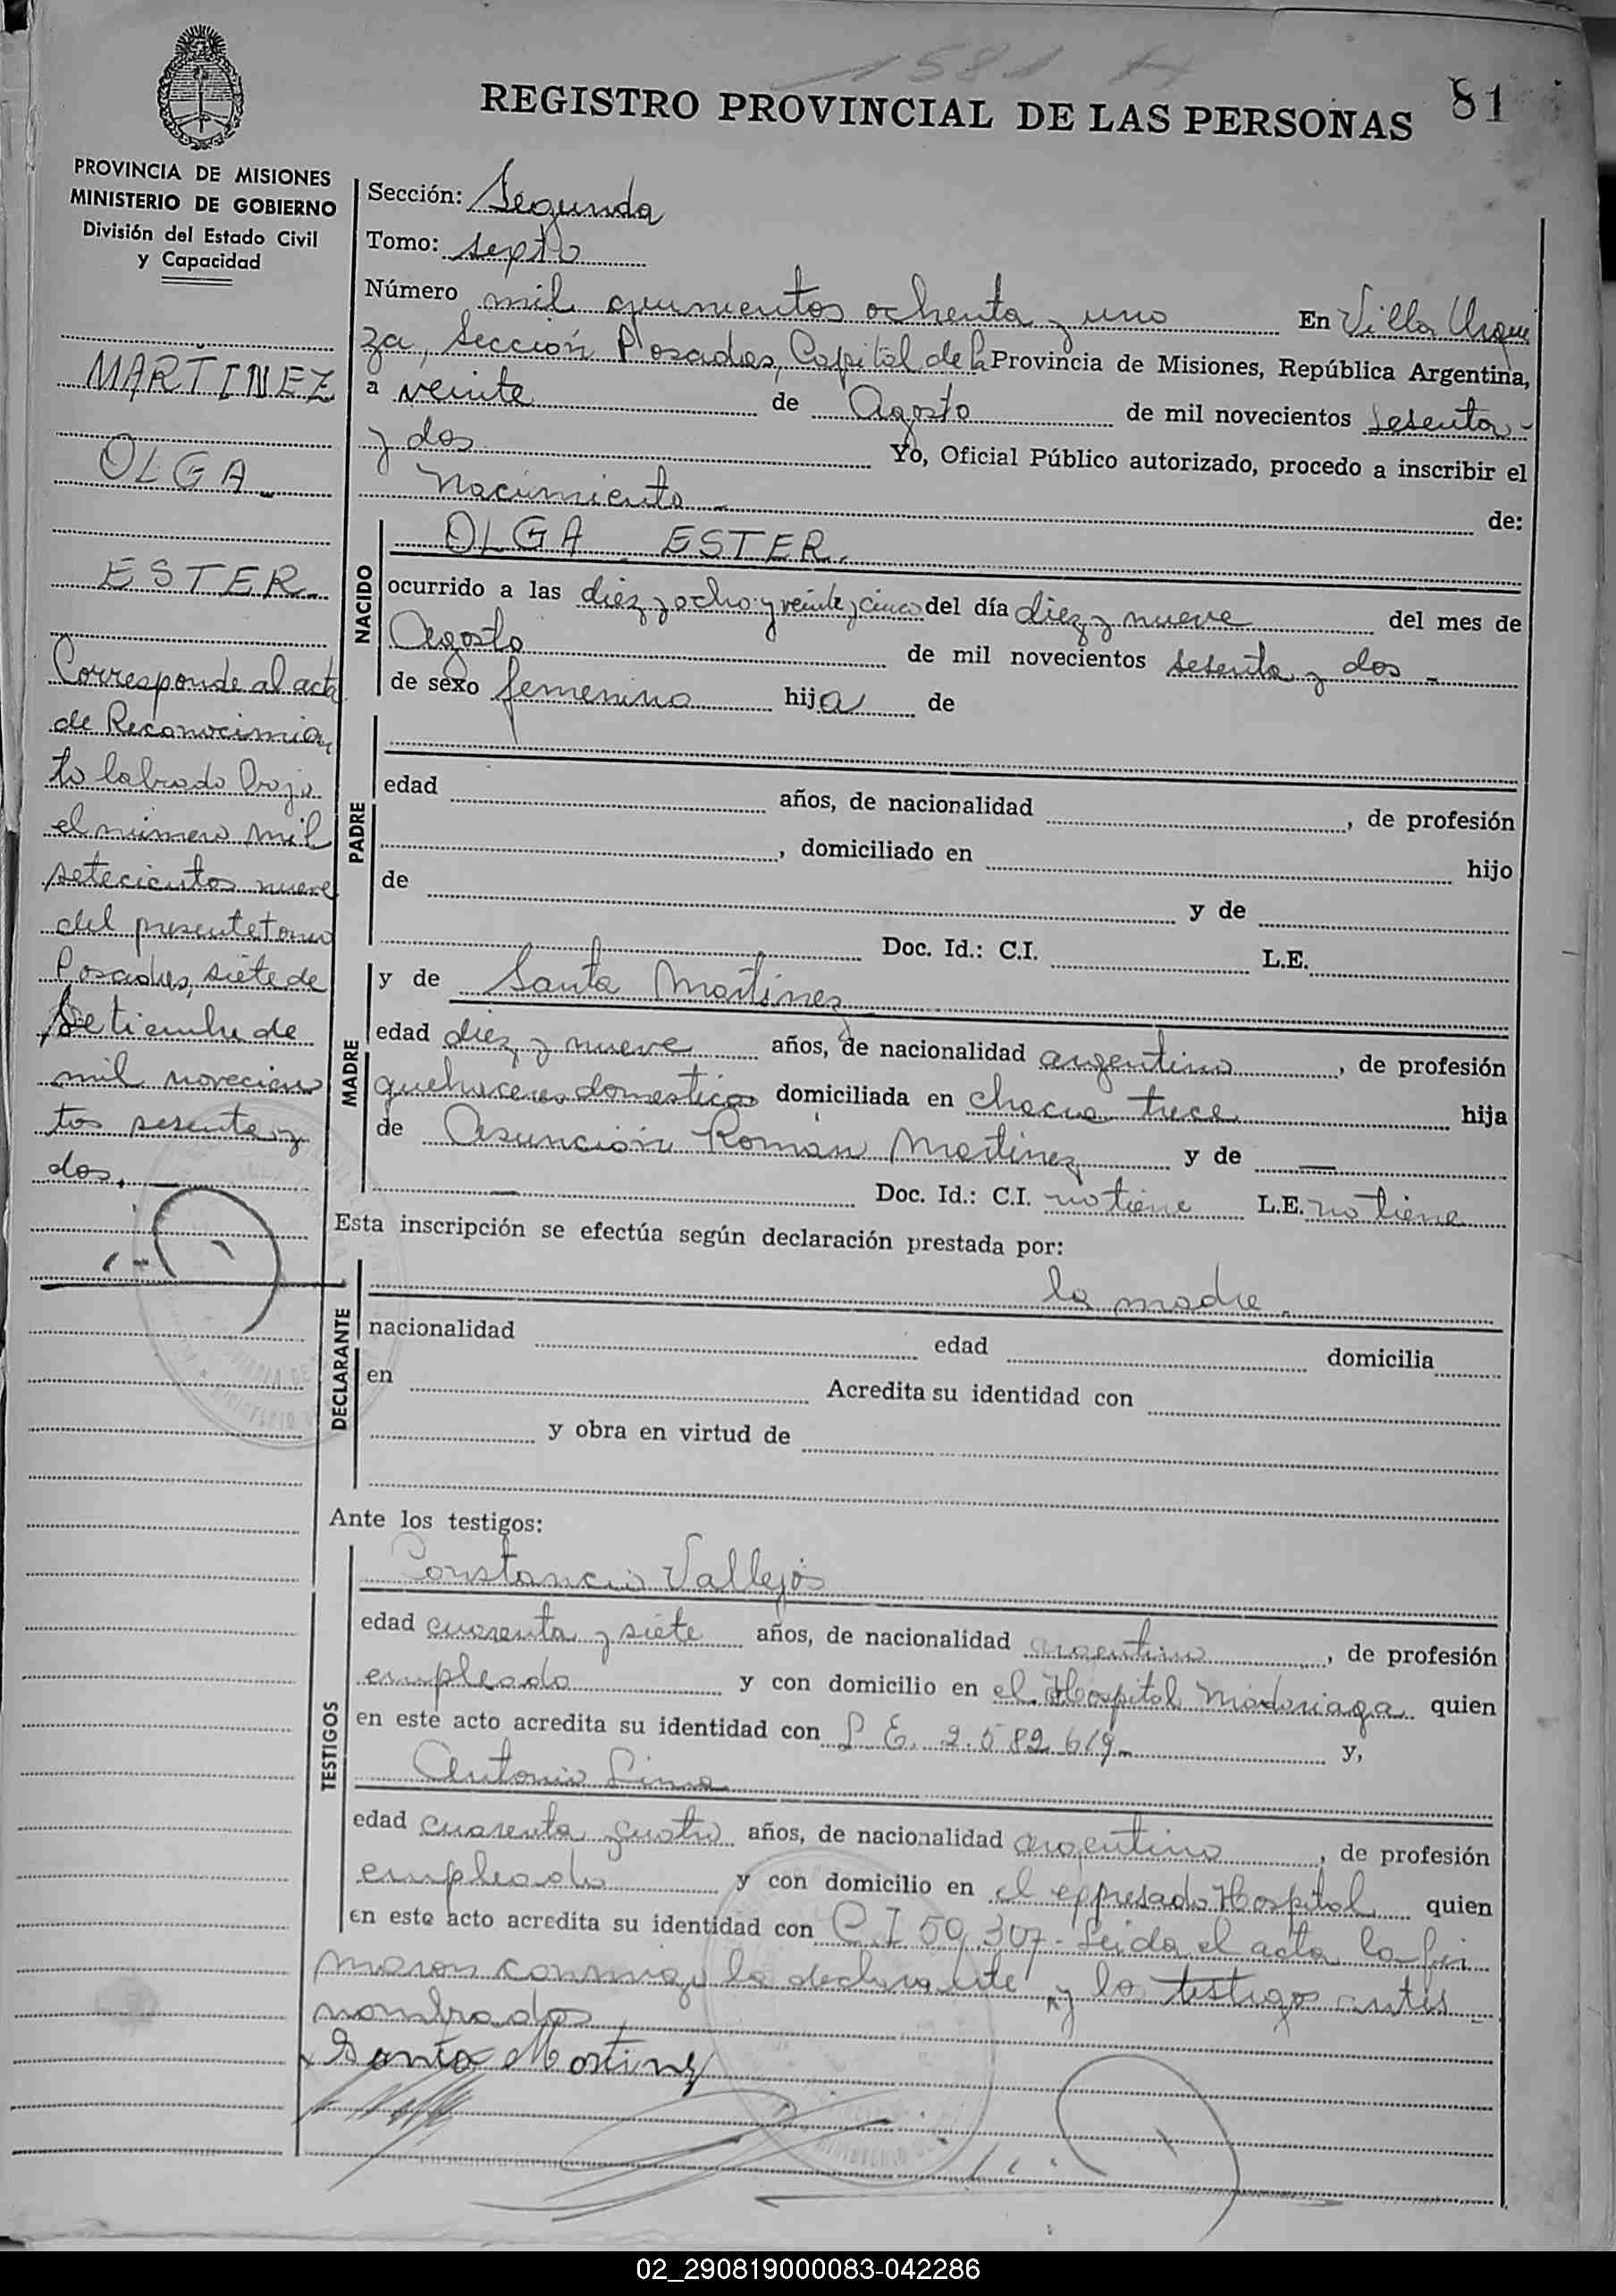 1581 H
REGISTRO PROVINCIAL DE LAS PERSONAS 81
PROVINCIA DE MISIONES
MINISTERIO DE GOBIERNO
División del Estado Civil
y Capacidad
MARTINEZ
OLGA
ESTER
Corresponde al acta
de Reconocimien
to labrado bajo
el número mil
setecientos nueve
del presente tomo
Posadas, siete de
Setiembre de
mil novecien
tos sesenta y
dos.
Sección: Segunda
Tomo: septo
Número mil quinientos ochenta y uno En Villa Urqui
za, Sección Posadas, Capital de la Provincia de Misiones, República Argentina,
a veinte de Agosto de mil novecientos sesenta
y dos Yo, Oficial Público autorizado, procedo a inscribir el
Nacimiento de:
NACIDO
OLGA ESTER.
ocurrido a las diez y ocho y veinte y cinco del día diez y nueve del mes de
Agosto de mil novecientos sesenta y dos
de sexo femenino hija de
PADRE
edad años, de nacionalidad , de profesión
, domiciliado en hijo
de y de
Doc. Id.: C.I. L.E.
MADRE
y de Santa Martinez
edad diez y nueve años, de nacionalidad argentina, de profesión
quehaceres domesticos domiciliada en chacra trece hija
de Asunción Román Martinez y de —
— Doc. Id.: C.I. no tiene L.E. no tiene
Esta inscripción se efectúa según declaración prestada por:
DECLARANTE
la madre.
nacionalidad edad domicilia
en Acredita su identidad con
y obra en virtud de
Ante los testigos:
TESTIGOS
Constancio Vallejos
edad cuarenta y siete años, de nacionalidad argentino, de profesión
empleado y con domicilio en el Hospital Madariaga quien
en este acto acredita su identidad con L E. 2.582.619- y,
Antonio Lima
edad cuarenta y cuatro años, de nacionalidad argentino, de profesión
empleado y con domicilio en el expresado Hospital quien
en este acto acredita su identidad con C.I 59.307- Leida el acta la fir
maron conmigo la declarante y los testigos antes
nombrados
Santa Martinez
02_290819000083-042286